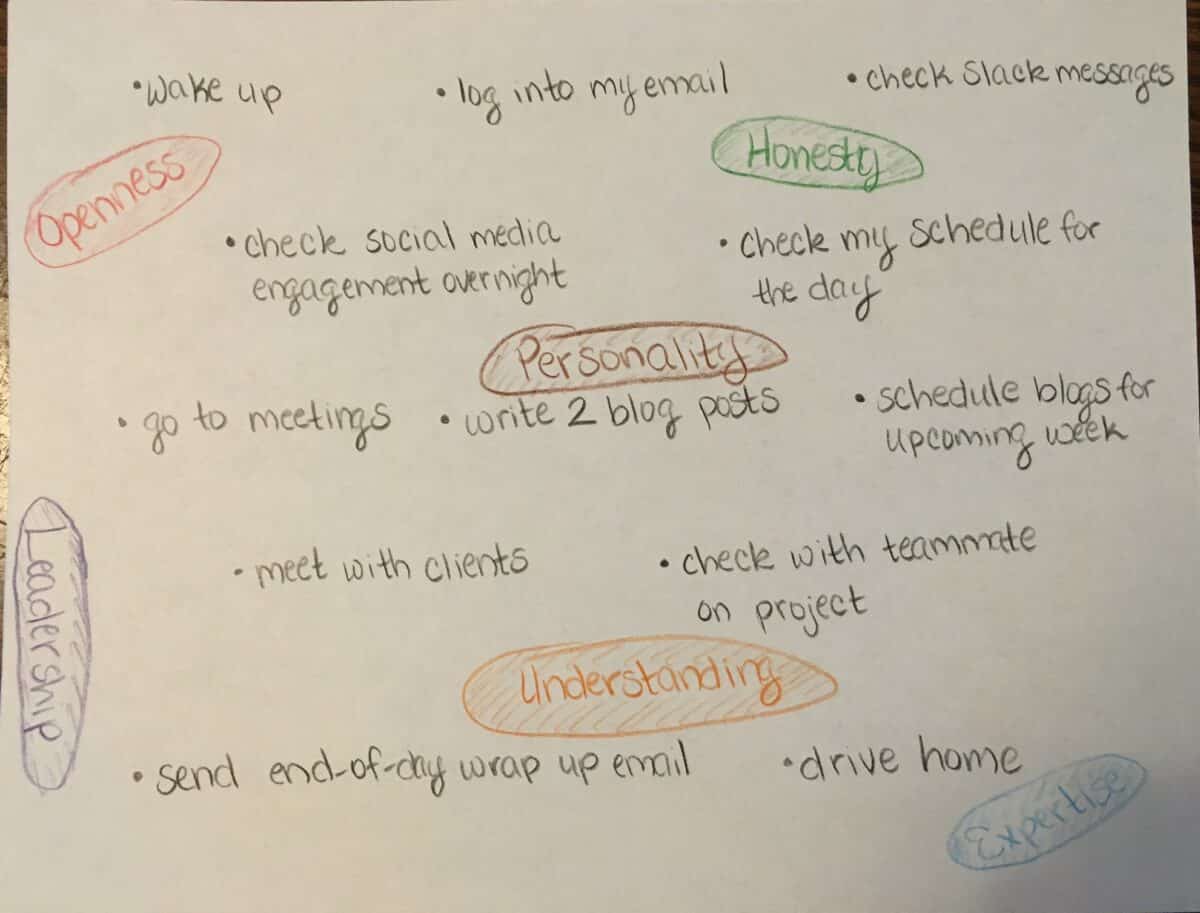 •wake up
•log into my email
•check slack messages
Openness
Honesty
•check social media
engagement overnight
•check my schedule for
the day
Personality
•go to meetings
•write 2 blog posts
•schedule blogs for
upcoming week
Leadership
•meet with clients
•check with teammate
on project
Understanding
•send end-of-day wrap up email
•drive home
Expertise